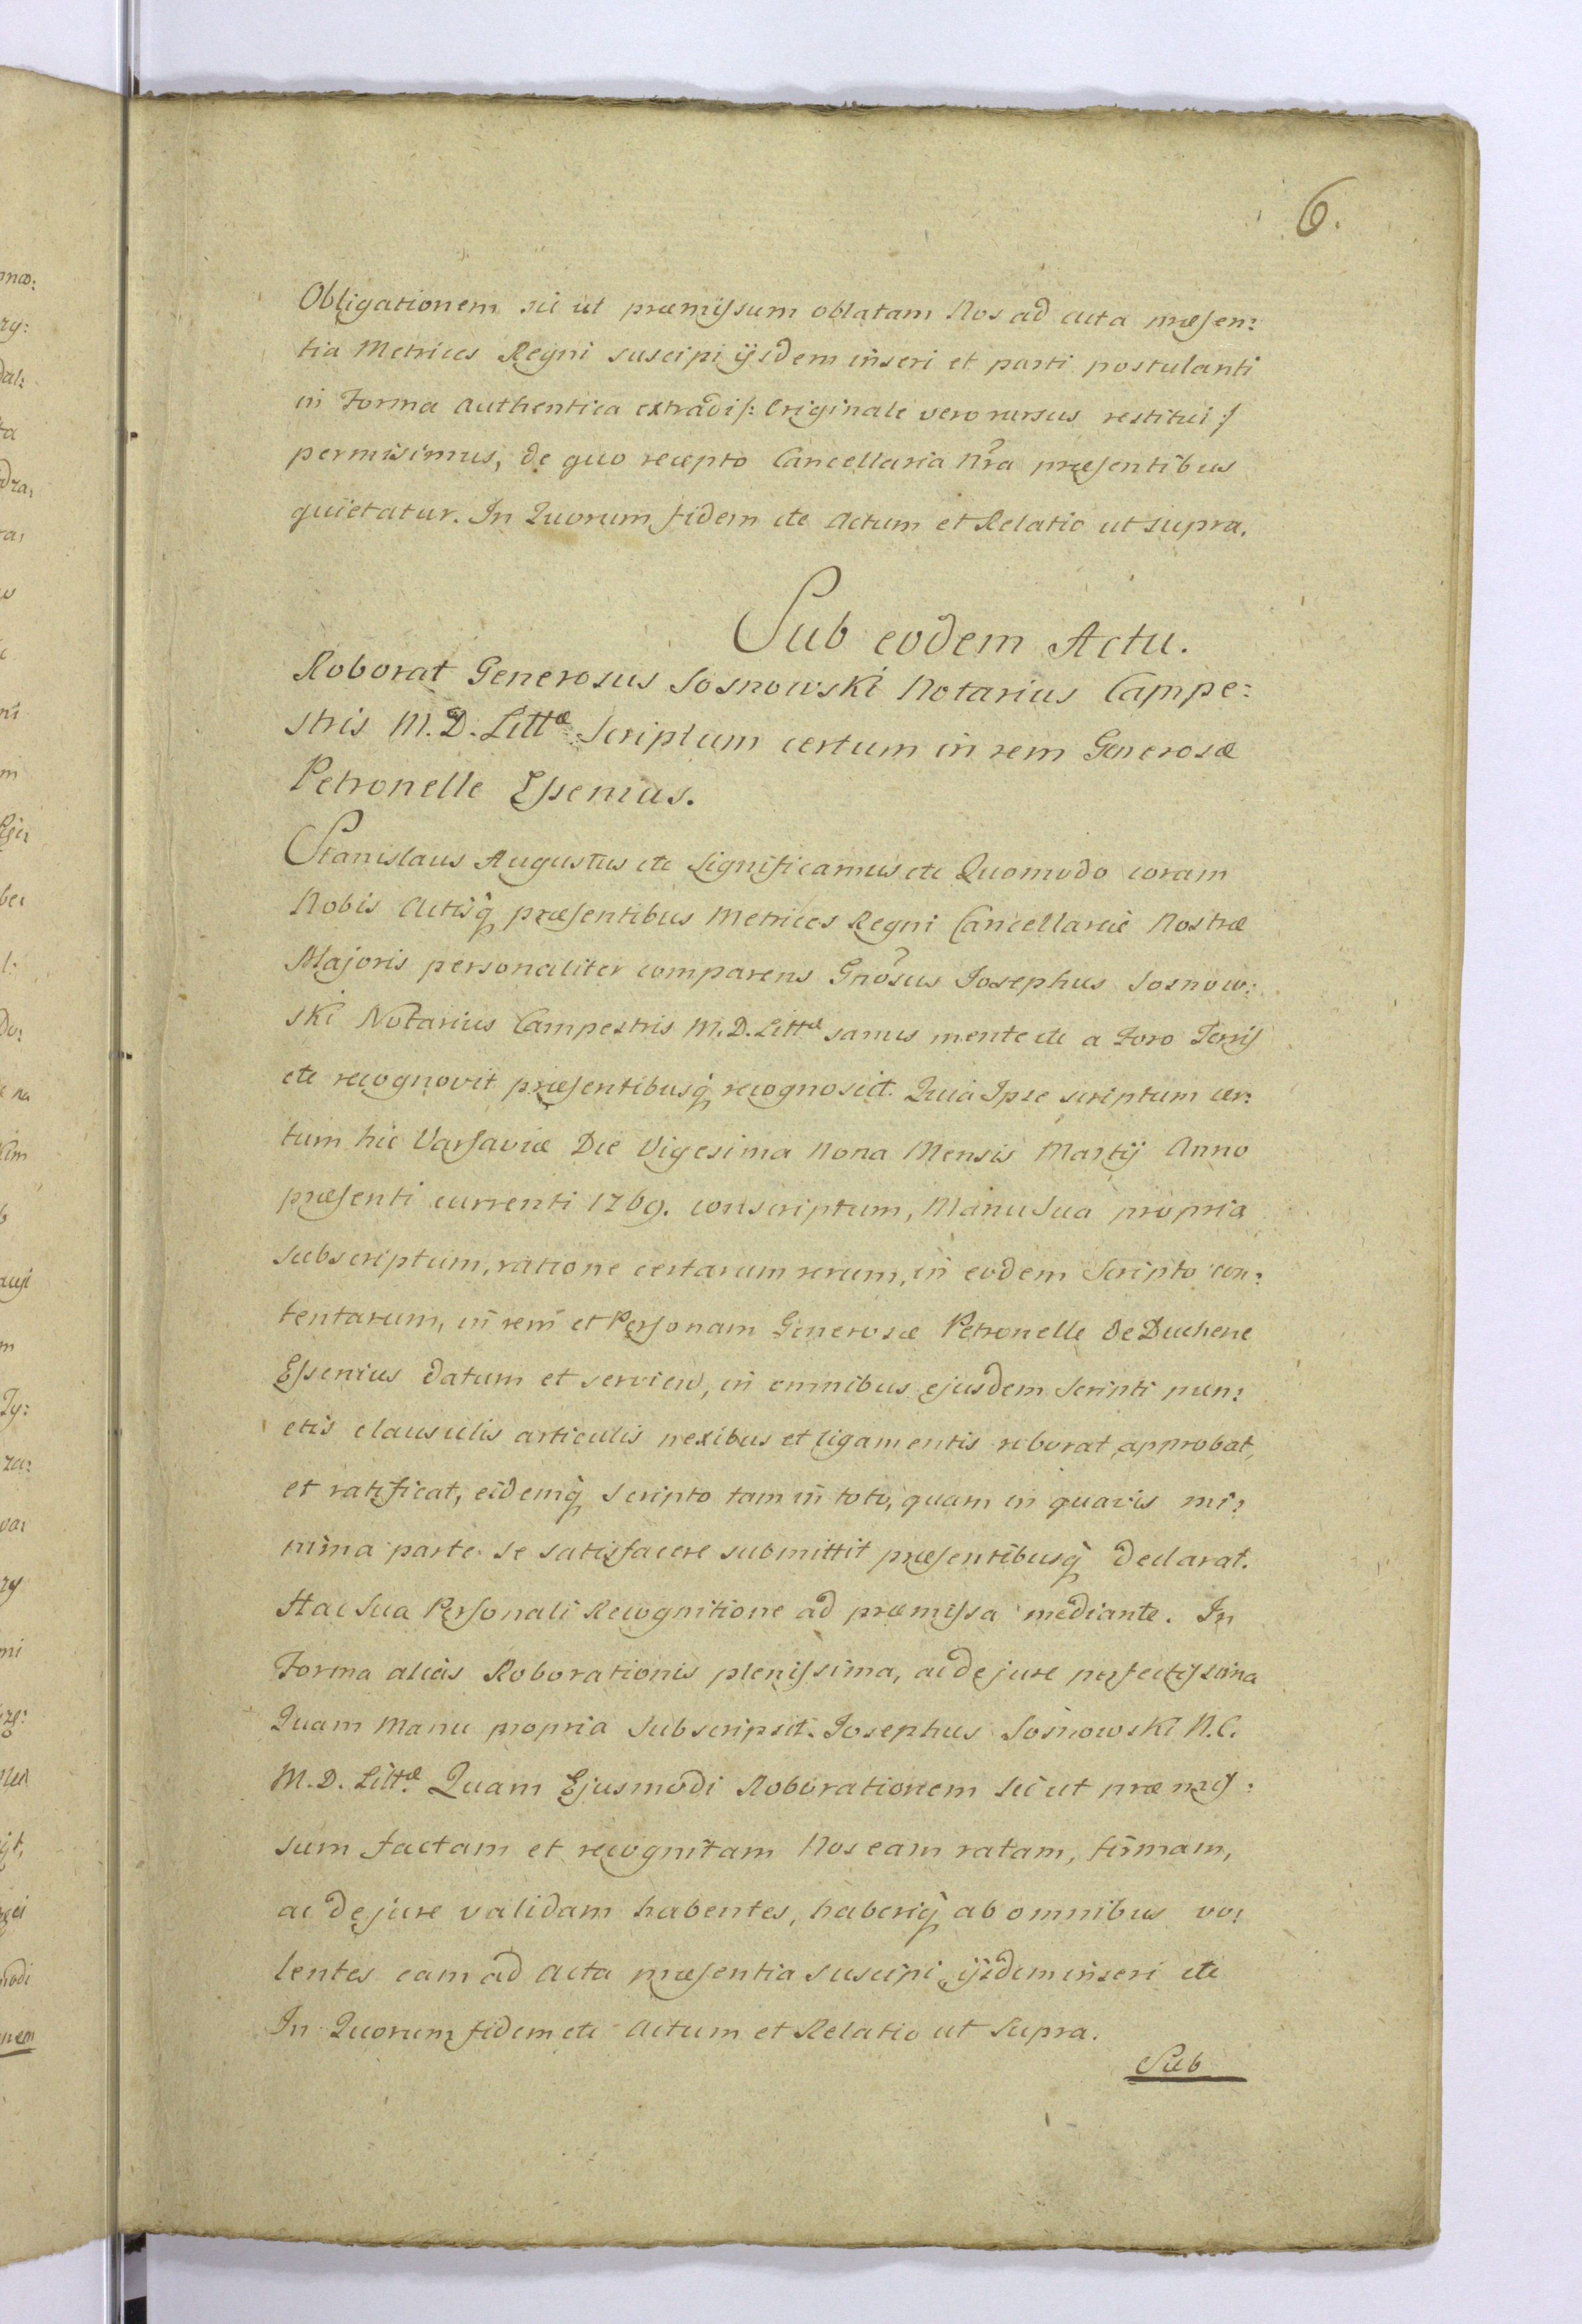 6.
Obligationem sic ut præmissum oblatam Nos ad acta præsen:
tia Metrices Regni suscipi ijsdem inseri et parti postulanti
in Forma Authentica extradi /: Originale vero rursus restitui :/
permisimus, de quo recepto Cancellaria Nra præsentibus
quietatur. In Quorum fidem etc Actum et Relatio ut supra.
Sub eodem Actu.
Roborat Generosus Sosnowski Notarius Campe:
stris M. D. Littæ Scriptum certum in rem Generosæ
Petronelle Essenius.
Stanislaus Augustus etc Significamus etc Quomodo coram
Nobis Actisq præsentibus Metrices Regni Cancellariæ Nostræ
Majoris personaliter comparens Gnosus Josephus Sosnow:
ski Notarius Campestris M. D. Littæ sanus mente etc a Foro Terris
etc recognovit præsentibusq recognoscit. Quia Ipse scriptum cer:
tum hic Varsaviæ Die Vigesima Nona Mensis Martij Anno
præsenti currenti 1769. conscriptum, Manu Sua propria
subscriptum, ratione certarum rerum, in eodem Scripto con:
tentarum, in rem et Personam Generosæ Petronelle de Duchene
Essenius datum et serviens, in omnibus ejusdem Scripti pun:
ctis clausulis articulis nexibus et ligamentis roborat approbat,
et ratificat, eidemq Scripto tam in toto, quam in quavis mi:
nima parte se satisfacere submittit præsentibusq declarat.
Hac Sua Personali Recognitione ad præmissa mediante. In
Forma alias Roborationis plenissima, ac de jure perfectissima
Quam Manu propria Subscripsit. Josephus Sosnowski N. C.
M. D. Littæ Quam Ejusmodi Roborationem sic ut præmis:
sum factam et recognitam Nos eam ratam, firmam,
ac de jure validam habentes, haberiq ab omnibus vo:
lentes eam ad Acta præsentia suscipi ijsdem inseri etc
In Quorum fidem etc Actum et Relatio ut Supra.
Sub